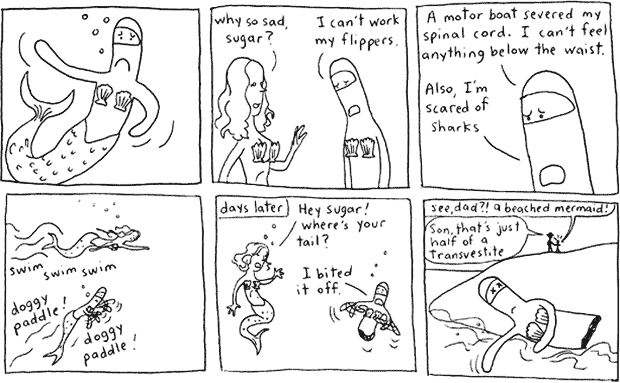 why so sad,
sugar?
I can't work
my flippers.
A motor boat severed my
spinal cord. I can't feel
anything below the waist.
Also, I'm
scared of
sharks
swim
swim
swim
doggy
paddle!
doggy
paddle!
days later
Hey sugar!
where's your
tail?
I bited
it off.
see, dad?! a beached mermaid!
Son, that's just
half of a
transvestite